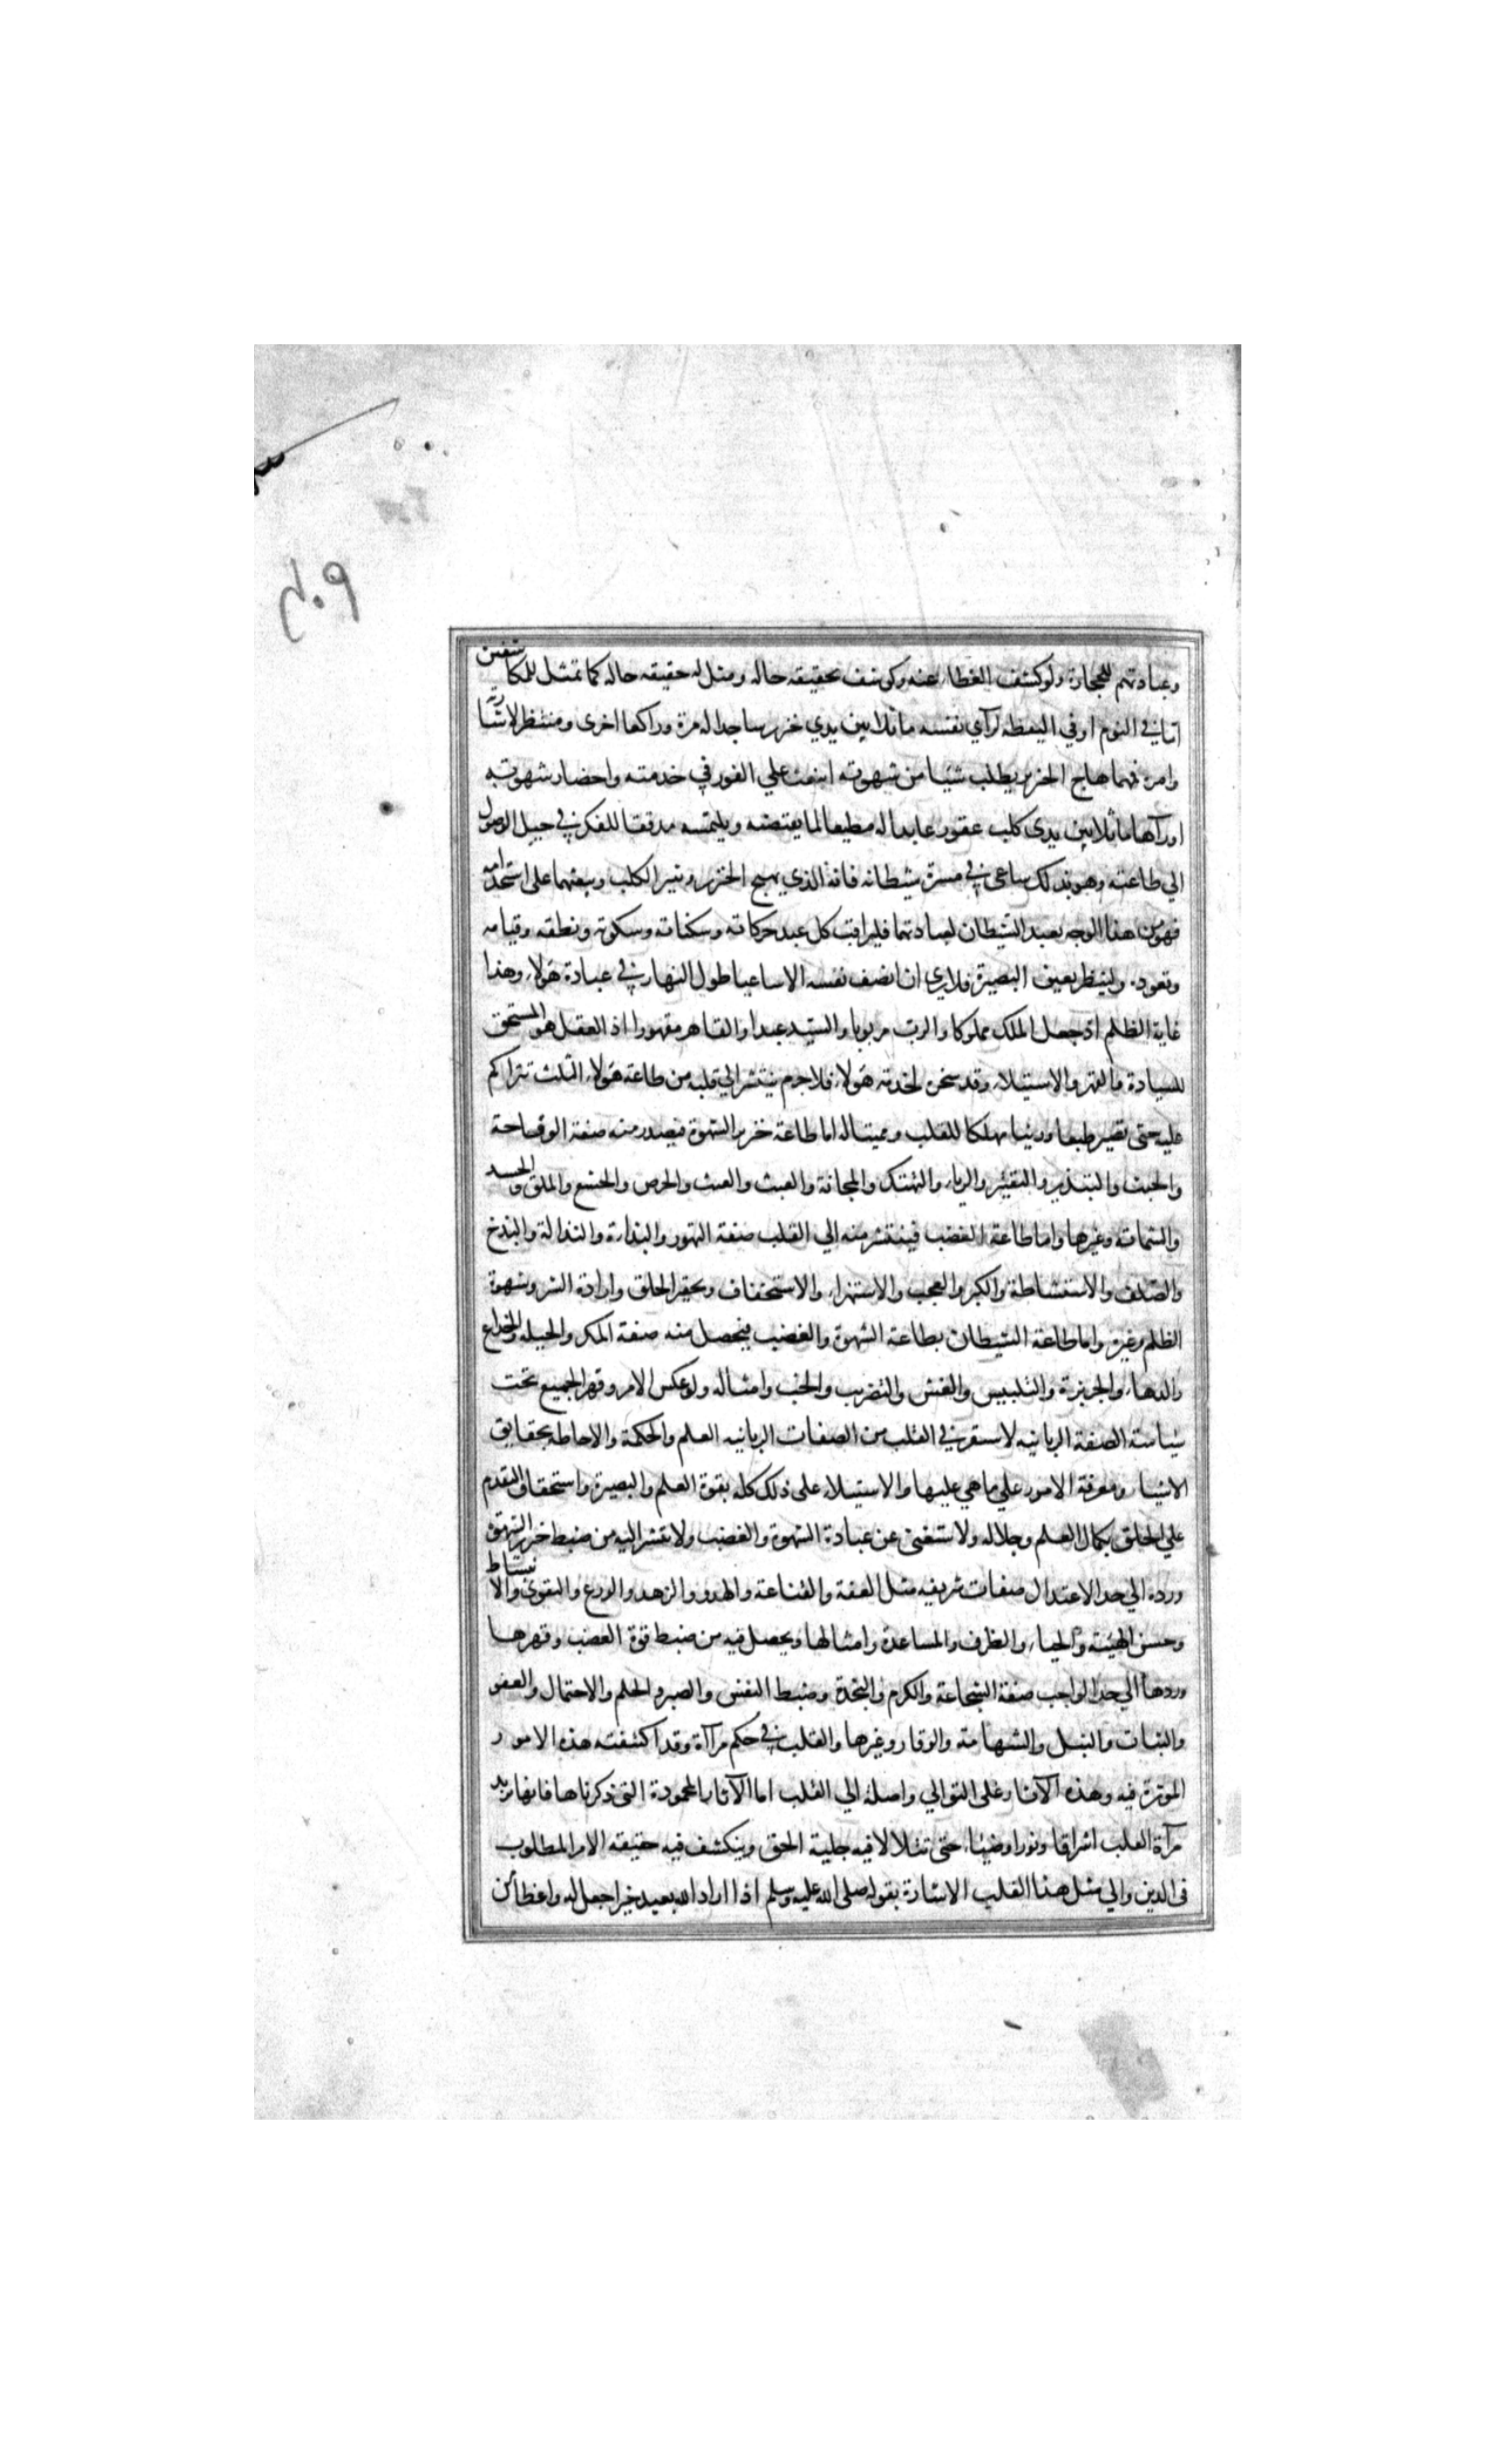 وعبادتهم للحجارة ولو كشف الغطاء عنه وكوشف بحقيقه حاله ومثل له حقيقه حاله كما تمثل للمكاشفين
اما في النوم او في اليقظه لرآي نفسه ماثلا بين يدي خنزير ساجدا له مرة وراكعا اخرى ومنتظرا لاشارته
وامره فهما هاج الخنزير يطلب شيئا من شهوته انبعث علي الفور في خدمته واحضار شهوته
او رآها ماثلا بين يدى كلب عقور عابدا له مطيعا لما يقتضيه ويلتمسه مدققا للفكر في حيل الوصول
الي طاعته وهو بذلك ساعى في مسرة شيطانه فانه الذي يهيج الخنزير ويثير الكلب ويبعثهما على استخدامه
فهو من هذا الوجه يعبد الشيطان لعبادتهما فليراقب كل عبد حركاته وسكناته وسكوته ونطقه وقيامه
وقعوده ولينظر بعين البصيرة فلا يرى ان انصف نفسه الا ساعيا طول النهار في عبادة هولاء وهذا
غاية الظلم اذ جعل الملك مملوكا والرب مربوبا والسيد عبدا والقاهر مقهورا اذ العقل هو المستحق
للسيادة والقهر والاستيلاء وقد سخره لخدمة هولاء فلا جرم ينتشر الي قلبه من طاعة هولاء الثلث تتراكم
عليه حتى تصير طبعا ورينا مهلكا للقلب ومميتا له اما طاعة خنزير الشهوة فيصدر منه صفة الوقاحة
والخبث والتبذير والتقتير والرياء والتهتك والمجانة والعبث والعبث والحرص والخشع والملق والحسد
والشماتة وغيرها واما طاعة الغضب فينتشر منه الي القلب صفة التهور والبذارة والنذالة والبذخ
والصلف والاستشاطة والكبر والعجب والاستهزاء والاستخفاف وتحقير الخلق وارادة الشر وشهوة
الظلم وغيره واما طاعة الشيطان بطاعة الشهوة والغضب فيحصل منه صفة المكر والحيله والخداع
والدهاء والجربزة والتلبيس والغش والتضريب والخب وامثاله ولو عكس الامر وقهر الجميع تحت
سياسة الصفة الربانيه لاستقر في القلب من الصفات الربانيه العلم والحكمة والاحاطه بحقايق
الاشيا ومعرفة الامور علي ما هي عليها والاستيلاء على ذلك كله بقوة العلم والبصيرة واستحقاق التقدم
علي الخلق بكمال العلم وجلاله ولاستغنى عن عبادة الشهوة والغضب ولانتشر اليه من ضبط خنزير الشهوة
ورده الي حد الاعتدال صفات شريفه مثل العفة والقناعة والهدو والزهد والورع والتقوى والانبساط
وحسن الهيئة والحيا والظرف والمساعدة وامثالها ويحصل فيه من ضبط قوة الغضب وقهرها
وردها الي حد الواجب صفة الشجاعة والكرم والنجدة وضبط النفس والصبر والحلم والاحتمال والعفو
والثبات والنبل والشهامة والوقار وغيرها والقلب في حكم مرآة وقد اكتنفته هذه الامور
الموثرة فيه وهذه الآثار على التوالي واصلة الي القلب اما الآثار المحمودة التى ذكرناها فانها تزيد
مرآة القلب اشراقا ونورا وضيئا حتى تتلالا فيه جلية الحق وينكشف فيه حقيقه الامر المطلوب
فى الدين والي مثل هذا القلب الاشارة بقوله صلى الله عليه وسلم اذا اراد الله بعبد خيرا جعل له واعظا من